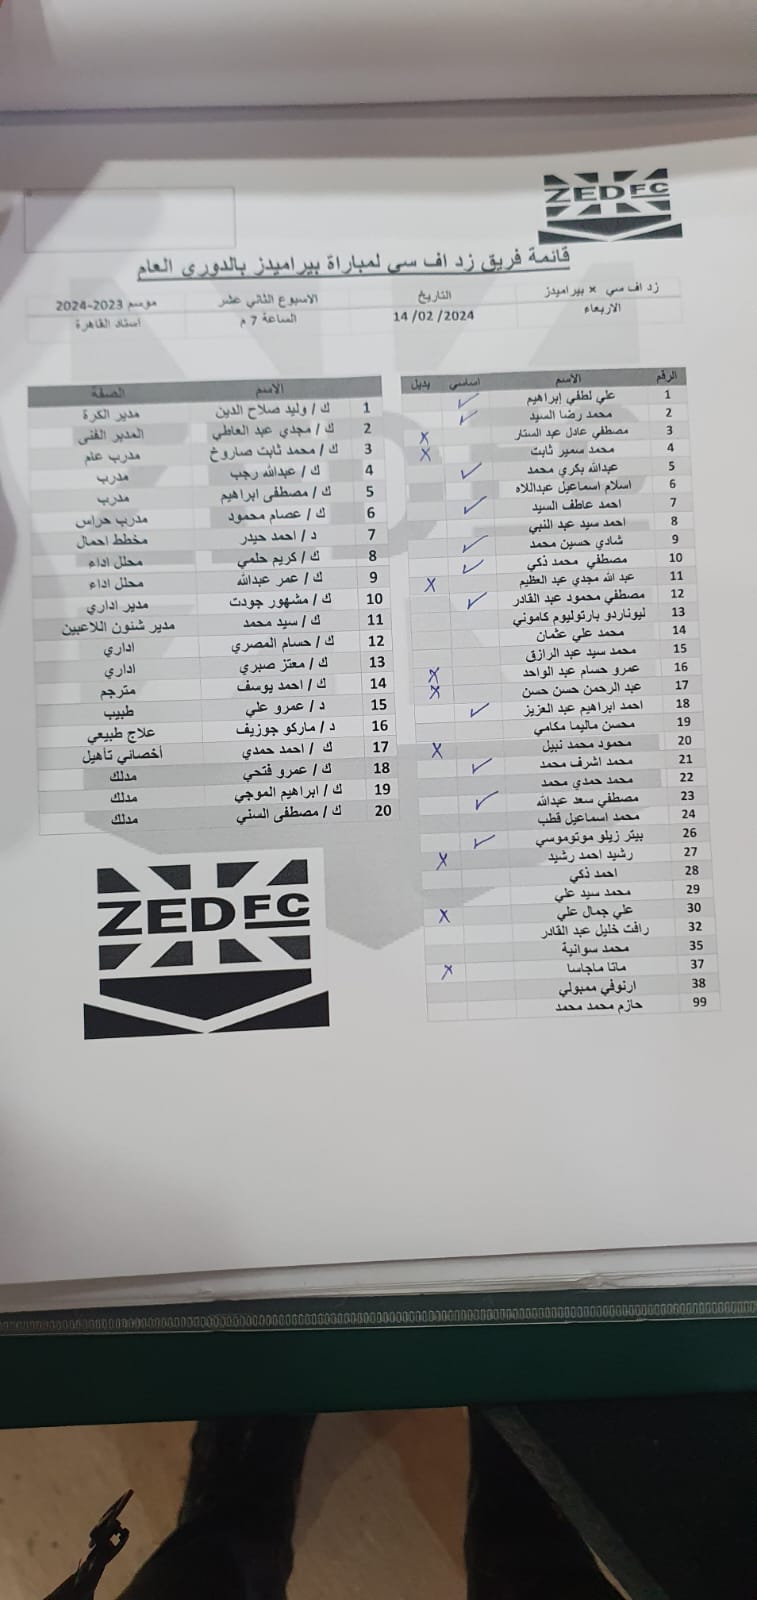 ZEDFC
قائمة فريق زد اف سي لمباراة بيراميدز بالدوري العام
زد اف سي × بيراميدز التاريخ الاسبوع الثاني عشر موسم 2023-2024
الاربعاء 14 /02 /2024 الساعة 7 م استاد القاهرة
الرقم الاسم اساسي بديل
1 علي لطفي إبراهيم ✓
2 محمد رضا السيد ✓
3 مصطفي عادل عبد الستار X
4 محمد سمير ثابت X
5 عبدالله بكري محمد ✓
6 اسلام اسماعيل عبداللاه
7 احمد عاطف السيد ✓
8 احمد سيد عبد النبي
9 شادي حسين محمد ✓
10 مصطفي محمد ذكي ✓
11 عبد الله مجدي عبد العظيم X
12 مصطفي محمود عبد القادر ✓
13 ليوناردو بارتوليوم كاموني
14 محمد علي عثمان
15 محمد سيد عبد الرازق
16 عمرو حسام عبد الواحد X
17 عبد الرحمن حسن حسن X
18 احمد ابراهيم عبد العزيز ✓
19 محسن ماليما مكامي
20 محمود محمد نبيل X
21 محمد اشرف محمد ✓
22 محمد حمدي محمد
23 مصطفي سعد عبدالله ✓
24 محمد اسماعيل قطب
26 بيتر زيلو موتوموسي ✓
27 رشيد احمد رشيد X
28 احمد ذكي
29 محمد سيد علي
30 علي جمال علي X
32 رافت خليل عبد القادر
35 محمد سوانية
37 ماتا ماجاسا X
38 ارنوفي ممبولي
99 حازم محمد محمد
الاسم الصفة
1 ك / وليد صلاح الدين مدير الكرة
2 ك / مجدي عبد العاطي المدير الفنى
3 ك / محمد ثابت صاروخ مدرب عام
4 ك / عبدالله رجب مدرب
5 ك / مصطفى ابراهيم مدرب
6 ك / عصام محمود مدرب حراس
7 د / احمد حيدر مخطط احمال
8 ك / كريم حلمي محلل اداء
9 ك / عمر عبدالله محلل اداء
10 ك / مشهور جودت مدير اداري
11 ك / سيد محمد مدير شئون اللاعبين
12 ك / حسام المصري اداري
13 ك / معتز صبري اداري
14 ك / احمد يوسف مترجم
15 د / عمرو علي طبيب
16 د / ماركو جوزيف علاج طبيعي
17 ك / احمد حمدي أخصائي تأهيل
18 ك / عمرو فتحي مدلك
19 ك / ابراهيم الموجي مدلك
20 ك / مصطفى السني مدلك
ZEDFC